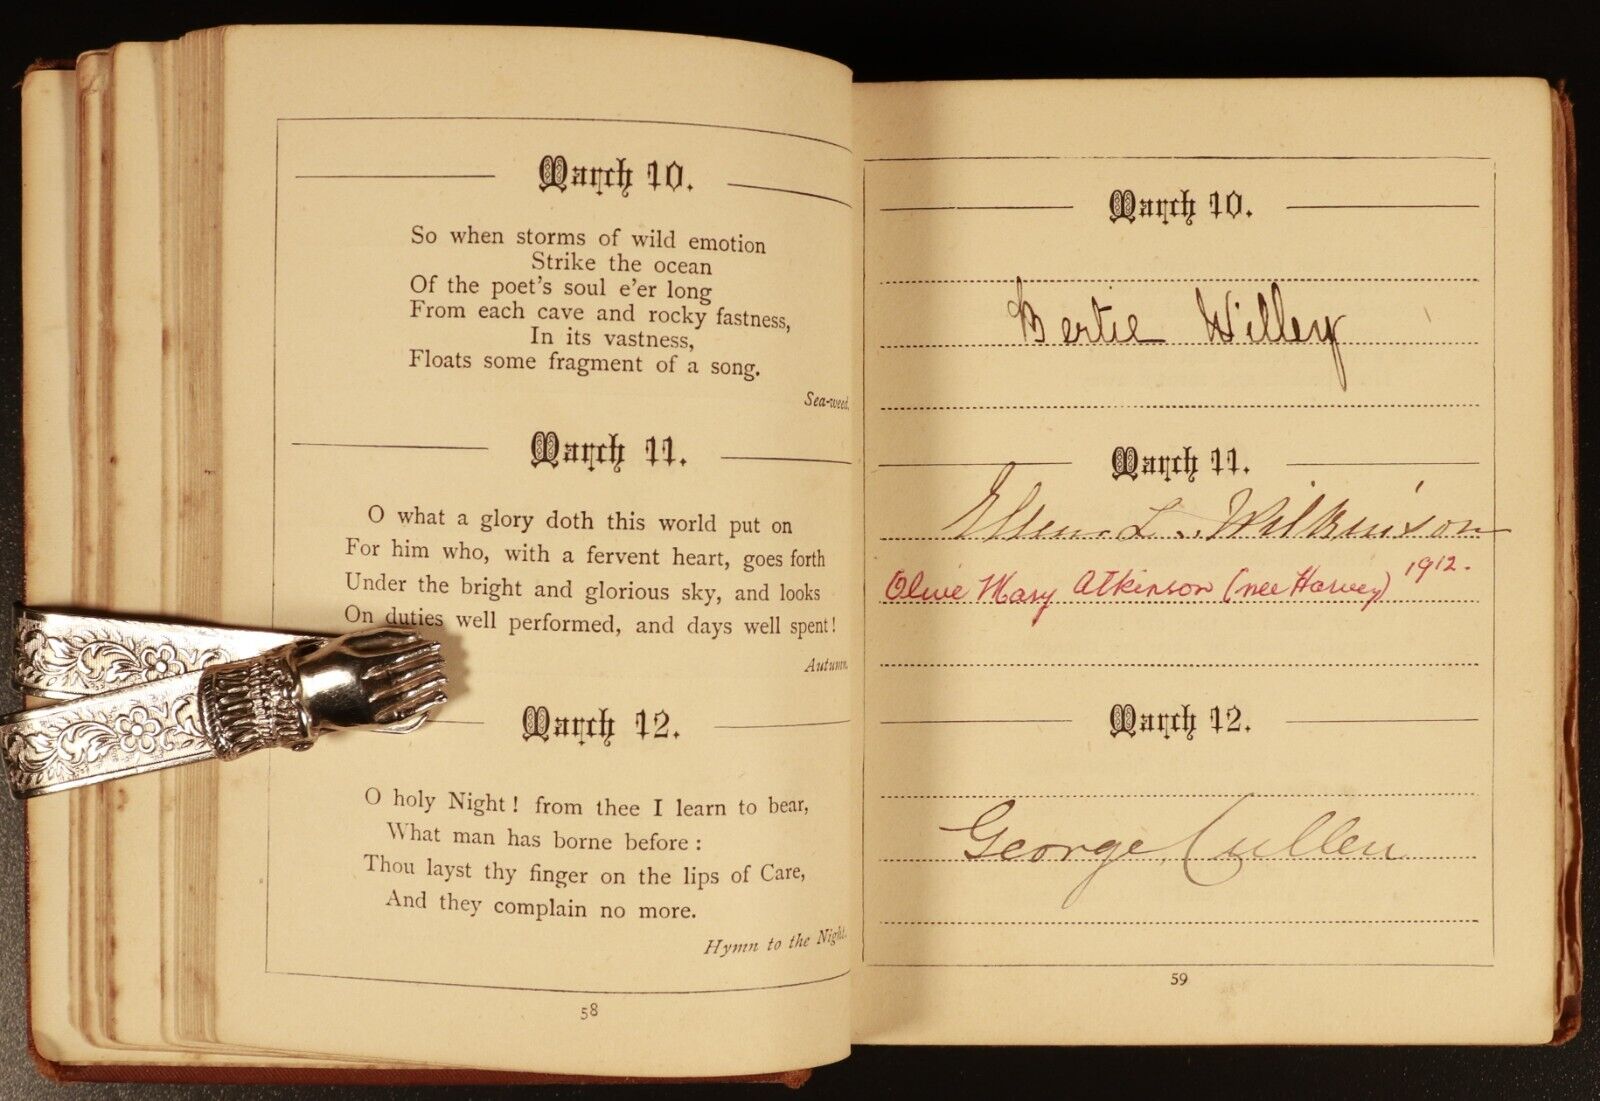 March 10.
So when storms of wild emotion
Strike the ocean
Of the poet's soul e'er long
From each cave and rocky fastness,
In its vastness,
Floats some fragment of a song.
Sea-weed.
March 11.
O what a glory doth this world put on
For him who, with a fervent heart, goes forth
Under the bright and glorious sky, and looks
On duties well performed, and days well spent!
Autumn.
March 12.
O holy Night! from thee I learn to bear,
What man has borne before:
Thou layst thy finger on the lips of Care,
And they complain no more.
Hymn to the Night.
58
March 10.
Bertie Willey
March 11.
Ellen L. Wilkinson
Olive Mary Atkinson (nee Harvey) 1912.
March 12.
George Cullen
59